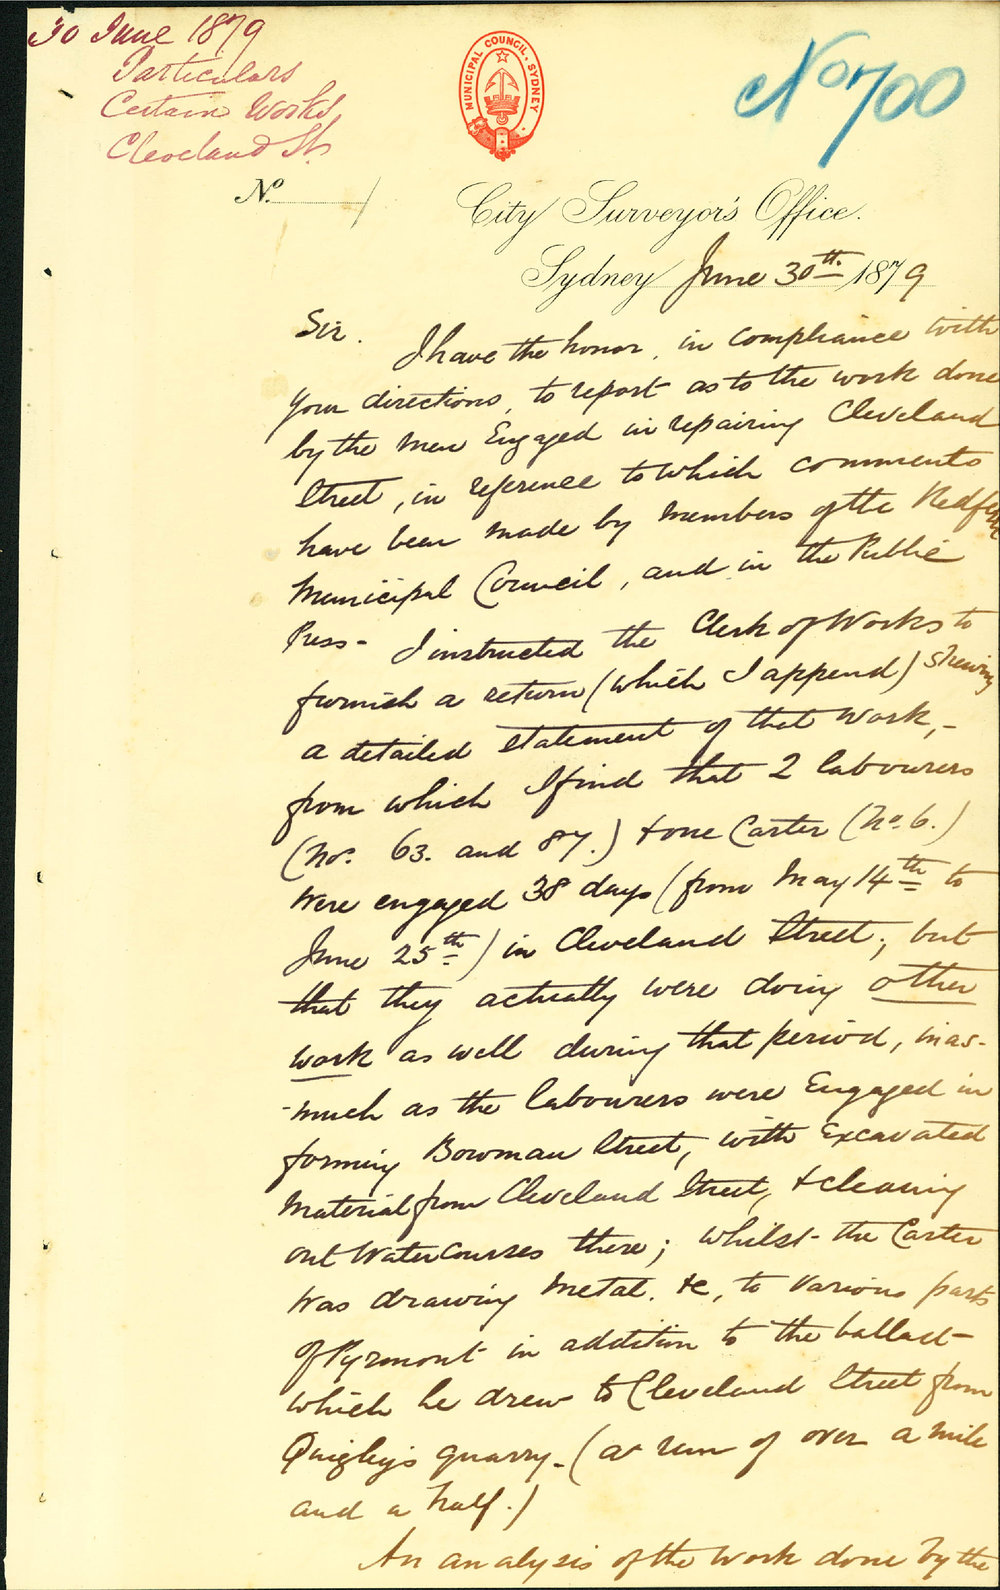 30 June 1879
Particulars
Certain Works
Cleveland St
No 700
MUNICIPAL COUNCIL. SYDNEY
No.
City Surveyor's Office.
Sydney June 30th 1879
Sir.
I have the honor, in compliance with
your directions, to report as to the work done
by the men Engaged in repairing Cleveland
Street, in reference to which comments
have been made by members of the Redfern
Municipal Council, and in the Public
Press - I instructed the Clerk of Works to
furnish a return (which I append) shewing
a detailed statement of that work, -
from which I find that 2 labourers
(Nos. 63. and 87.) + one Carter (No. 6.)
were engaged 38 days (from May 14th to
June 25th) in Cleveland Street; but
that they actually were doing other
work as well during that period, inas-
-much as the labourers were Engaged in
forming Bowman Street, with Excavated
Material from Cleveland Street, + cleaning
out Watercourses there; whilst the Carter
was drawing Metal. &c, to various parts
of Pyrmont in addition to the ballast
which he drew to Cleveland Street from
Quigley's quarry - (a run of over a mile
and a half.)
An analysis of the work done by the